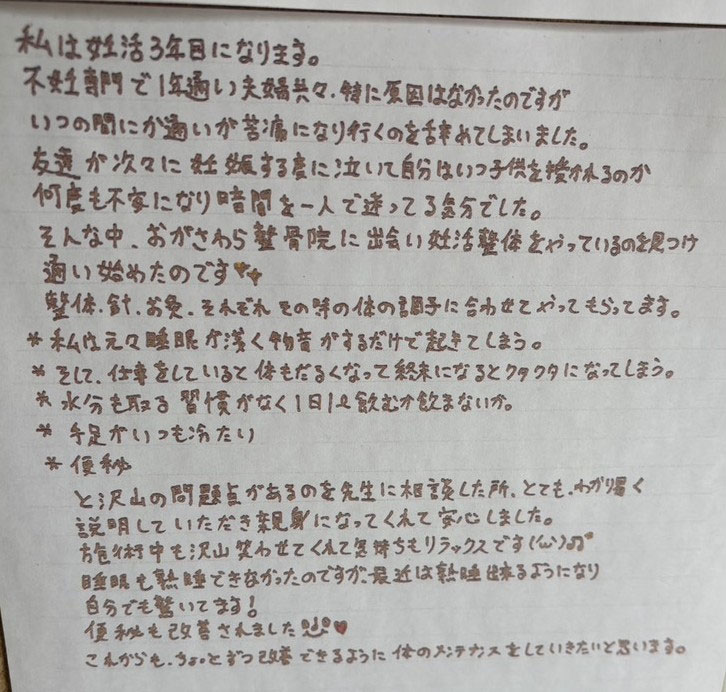 私は妊活3年目になります。
不妊専門で1年通い夫婦共々、特に原因はなかったのですが
いつの間にか通いが苦痛になり行くのを辞めてしまいました。
友達が次々に妊娠する度に泣いて自分はいつ子供を授かれるのか
何度も不安になり暗闇を一人で迷ってる気分でした。
そんな中、おがさわら整骨院に出会い妊活整体をやっているのを見つけ
通い始めたのです
整体、針、お灸、それぞれその時の体の調子に合わせてやってもらってます。
* 私は元々睡眠が浅く物音がするだけで起きてしまう。
* そして、仕事をしていると体もだるくなって終末になるとクタクタになってしまう。
* 水分も取る習慣がなく1日1ℓ飲むか飲まないか。
* 手足がいつも冷たい
* 便秘
と沢山の問題点があるのを先生に相談した所、とても、わかり易く
説明していただき親身になってくれて安心しました。
施術中も沢山笑わせてくれて気持ちもリラックスです(^ω^)♫
睡眠も熟睡できなかったのですが、最近は熟睡出来るようになり
自分でも驚いてます!
便秘も改善されました♥
これからも、ちょっとずつ改善できるように体のメンテナンスをしていきたいと思います。